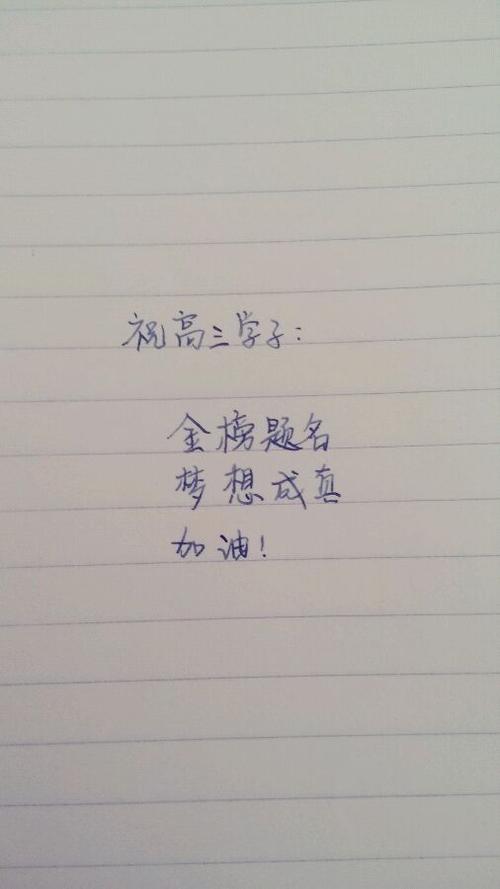 祝高三学子：
金榜题名
梦想成真
加油！